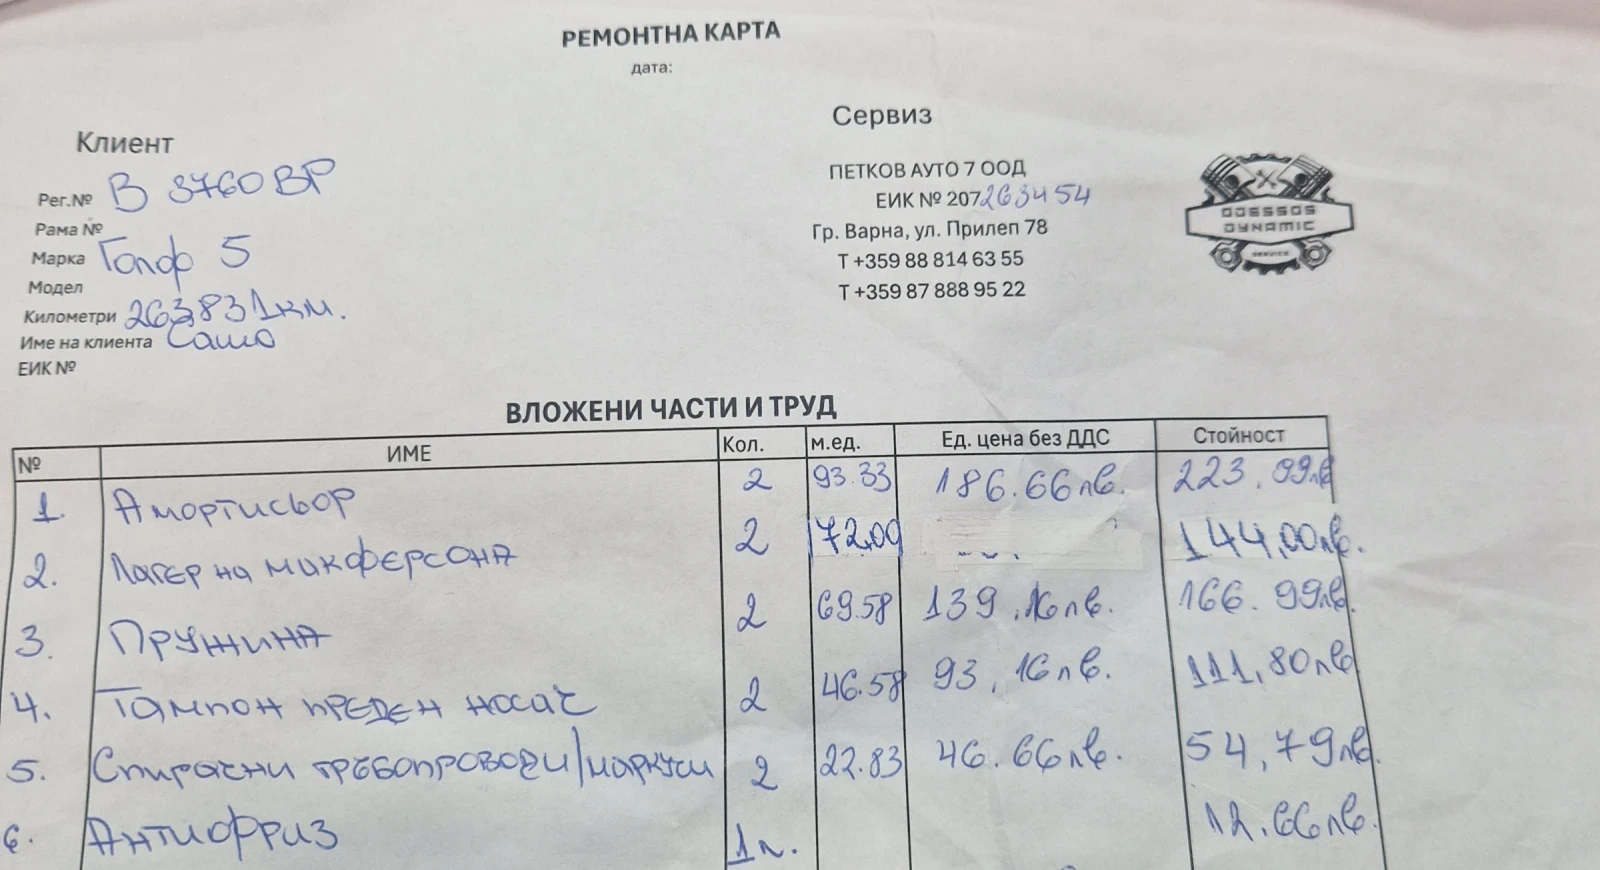 РЕМОНТНА КАРТА
дата:
Клиент
Рег.№ В 3760 ВР
Рама №
Марка Голф 5
Модел
Километри 263831км.
Име на клиента Сашо
ЕИК №
Сервиз
ПЕТКОВ АУТО 7 ООД
ЕИК № 207263454
Гр. Варна, ул. Прилеп 78
Т +359 88 814 63 55
Т +359 87 888 95 22
ODESSOS
DYNAMIC
SERVICE
ВЛОЖЕНИ ЧАСТИ И ТРУД
№ ИМЕ Кол. м.ед. Ед. цена без ДДС Стойност
1. Амортисьор 2 93.33 186.66лв. 223.99лв
2. Лагер на макферсона 2 72,00 144,00лв.
3. Пружина 2 69.58 139,16лв. 166.99лв.
4. Тампон преден носач 2 46.58 93,16лв. 111,80лв
5. Спирачни тръбопроводи/маркучи 2 22.83 46.66лв. 54,79лв.
6. Антифриз 1л. 12.66лв.